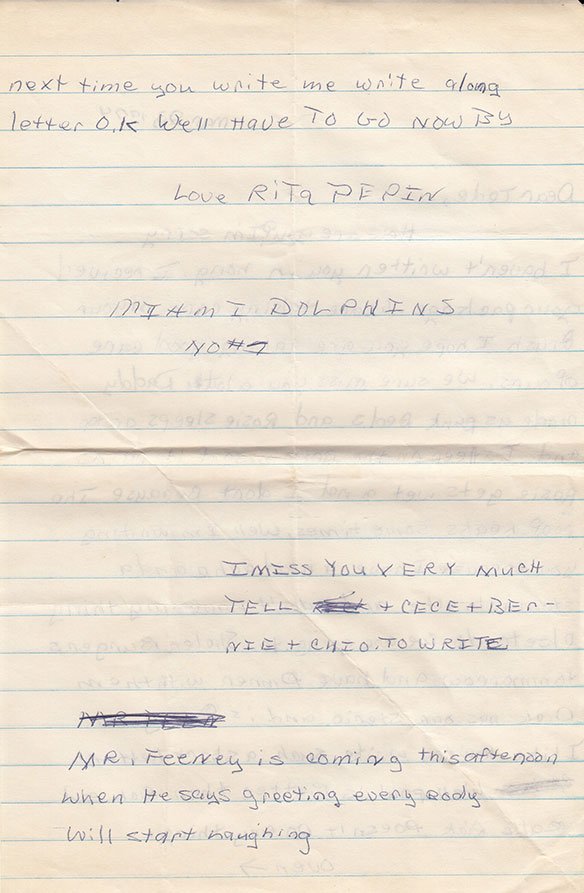 next time you write me write along
letter O.K Well Have TO GO NOW BY
Love RiTa PEPIN
MIAMI DOLPHINS
NO#1
I MISS YOU VERY MUCH
TELL + CECE + BER-
NIE + CHIO. TO WRITE
MR. FEENEY is coming this afternoon
when He says greeting every Body
will start haughing